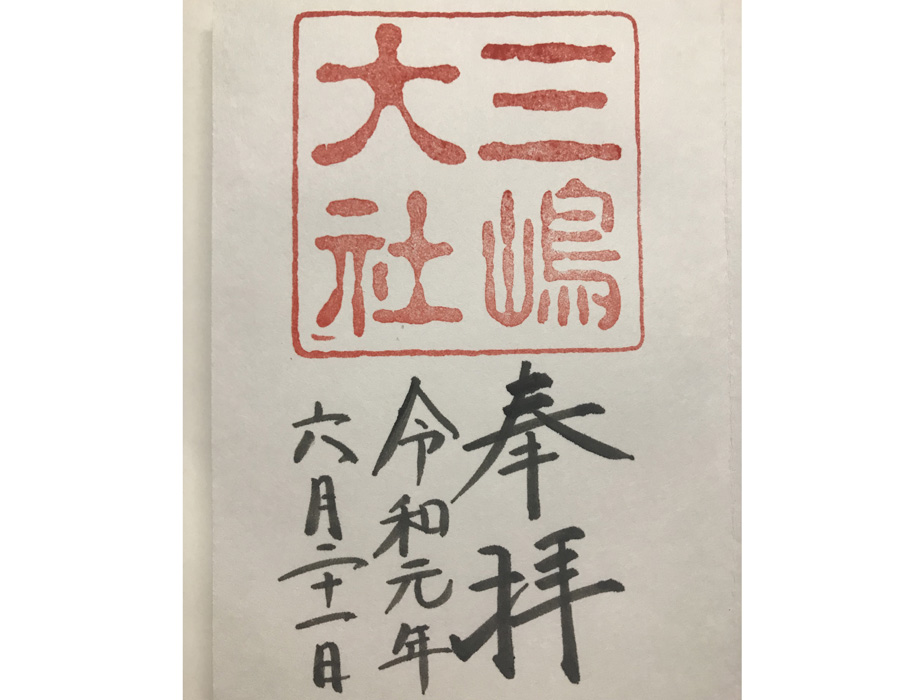 三嶋
大社
奉拝
令和元年
六月二十一日